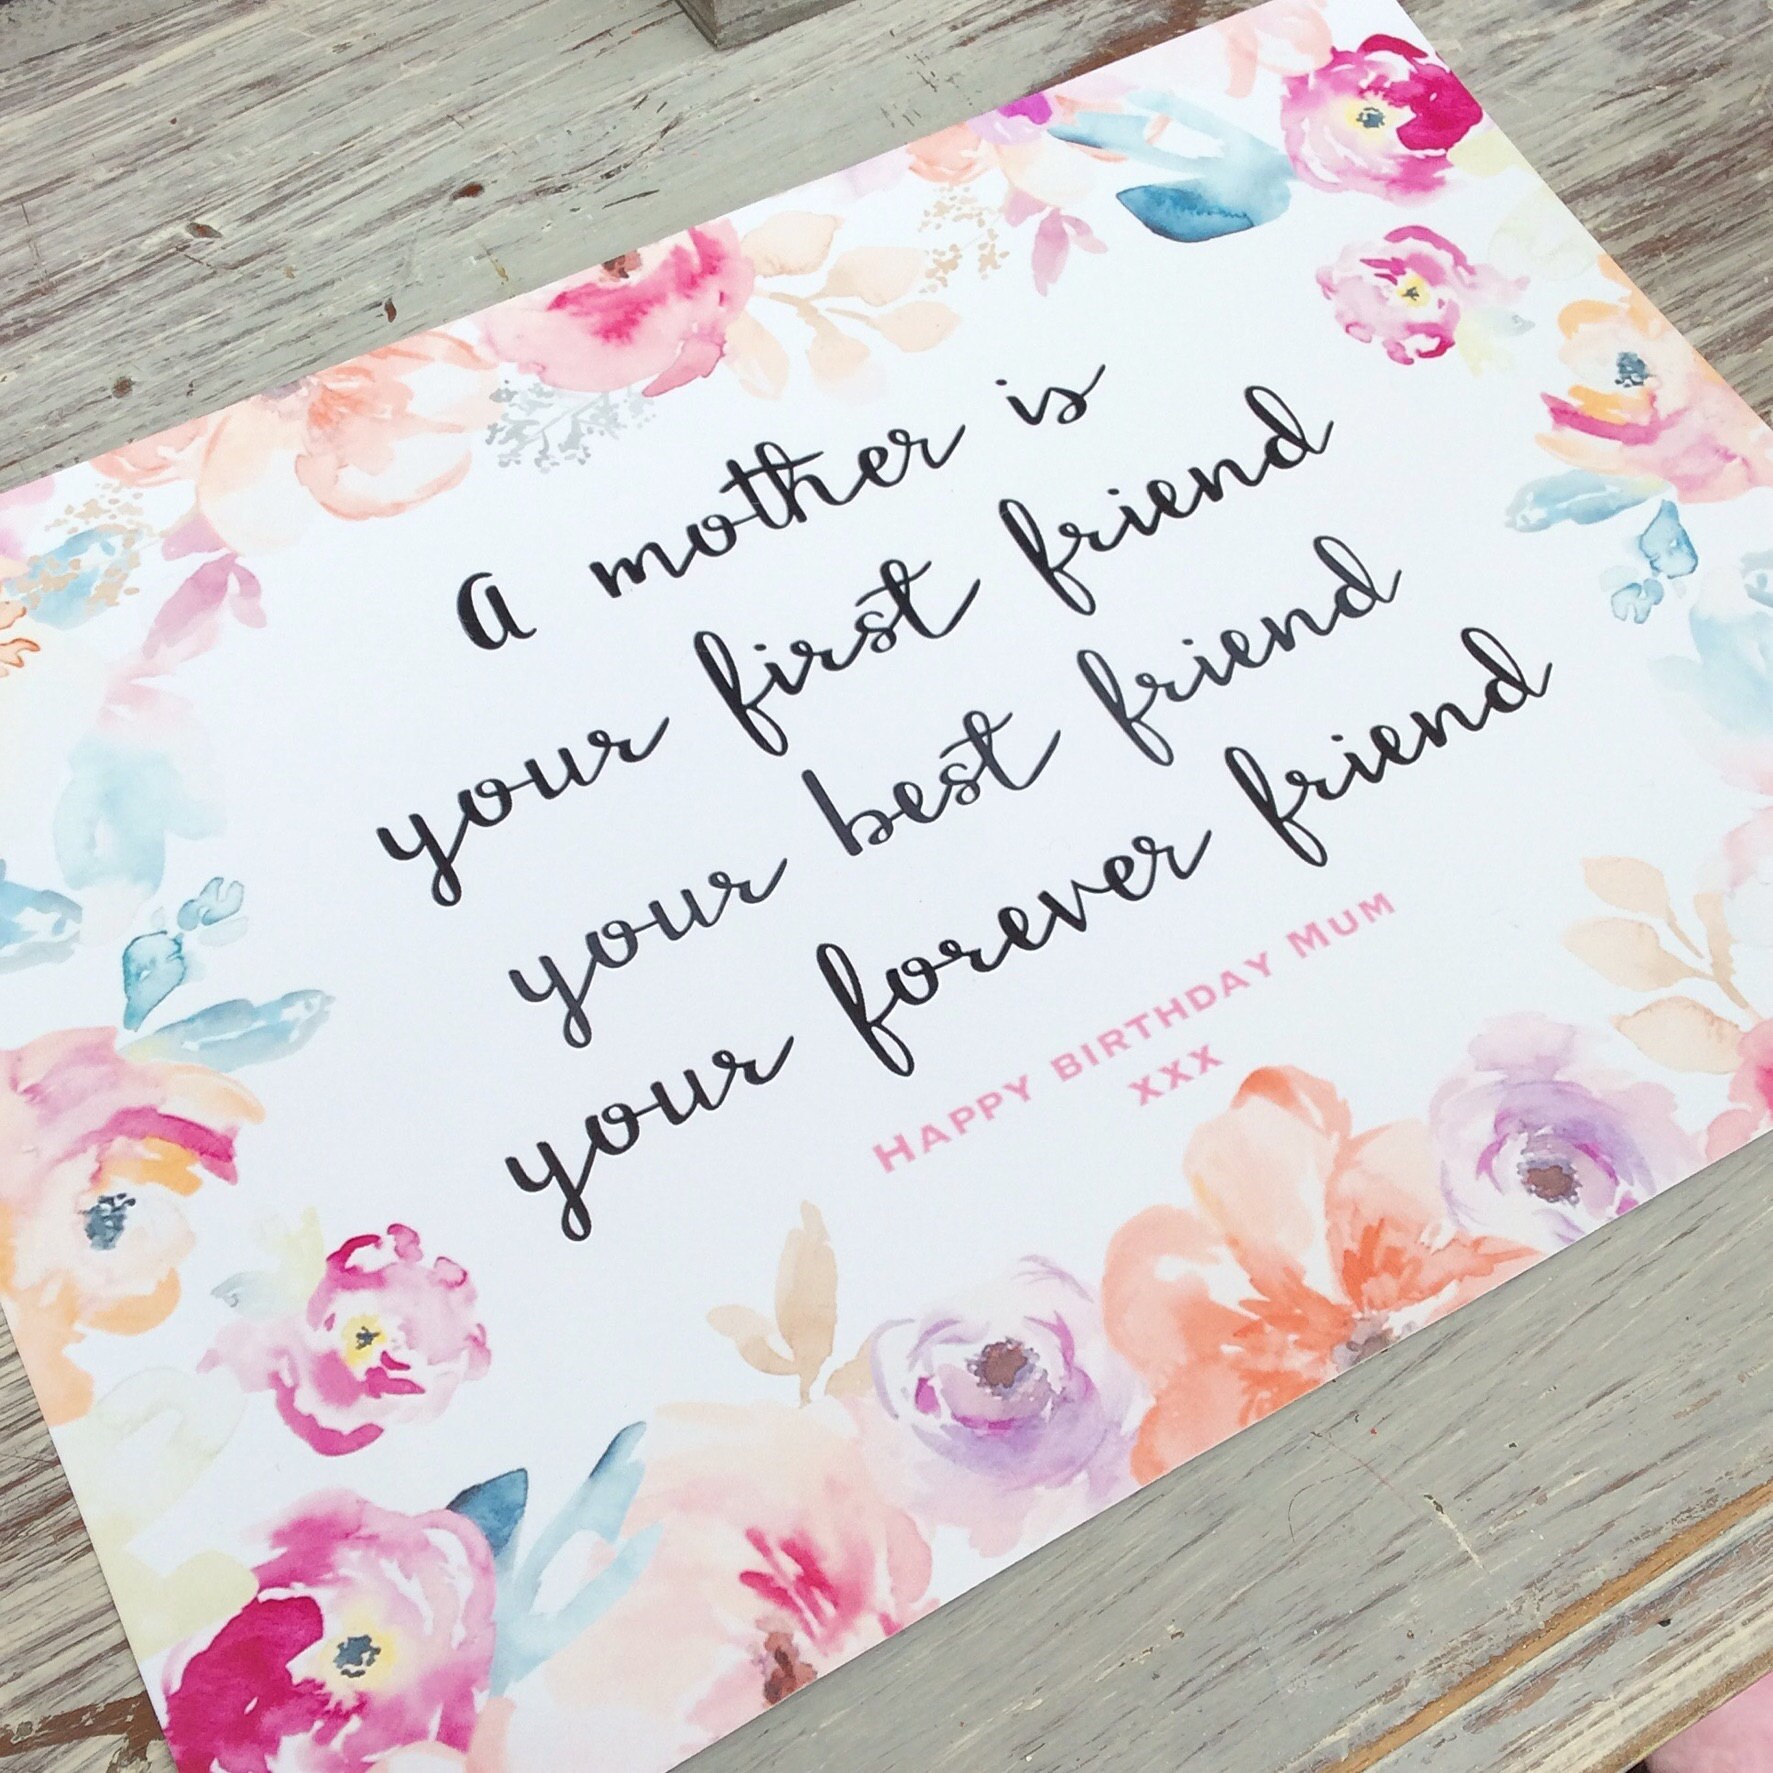 a mother is
your first friend
your best friend
your forever friend
Happy birthday Mum
xxx